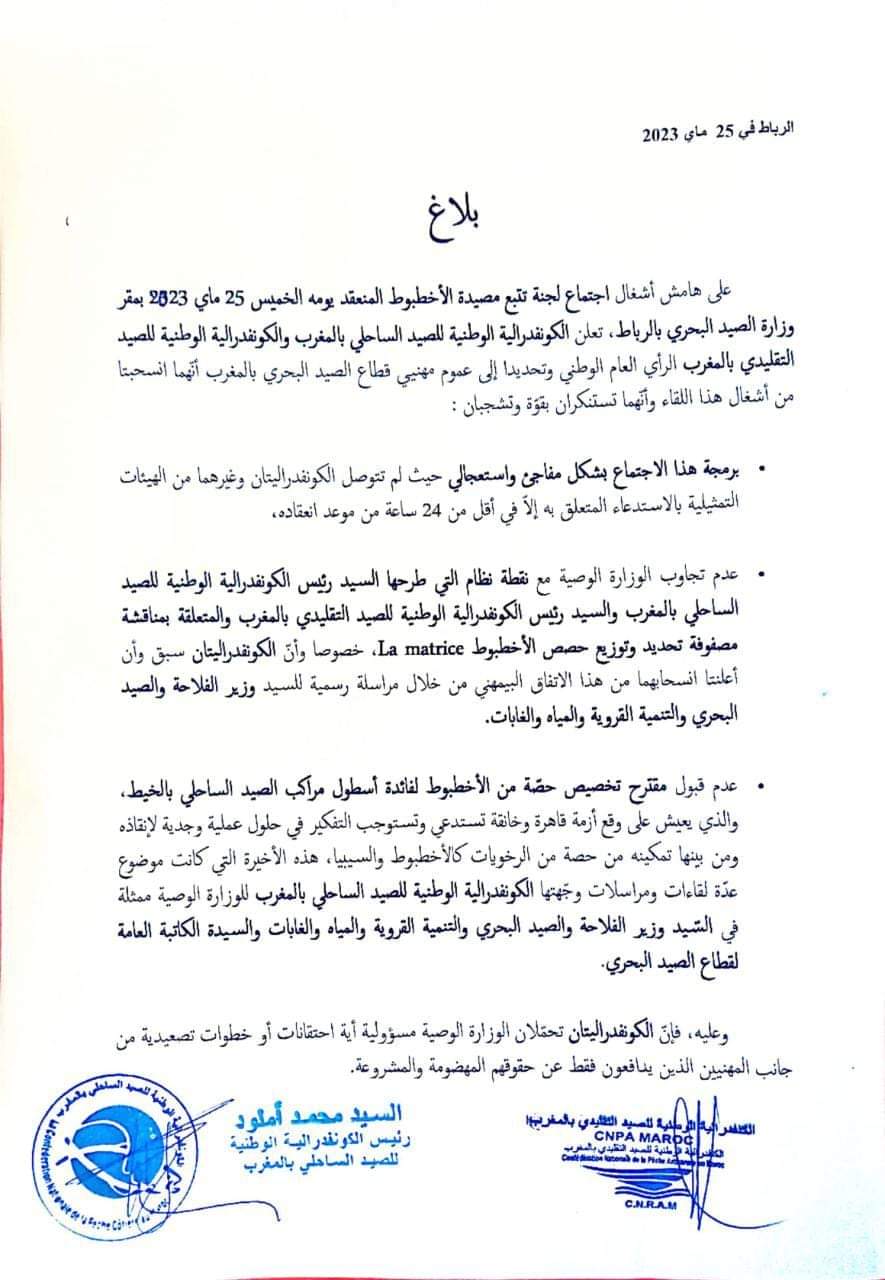 الرباط في 25 ماي 2023
بلاغ
على هامش أشغال اجتماع لجنة تتبع مصيدة الأخطبوط المنعقد يومه الخميس 25 ماي 2023 بمقر
وزارة الصيد البحري بالرباط، تعلن الكونفدرالية الوطنية للصيد الساحلي بالمغرب والكونفدرالية الوطنية للصيد
التقليدي بالمغرب الرأي العام الوطني وتحديدا إلى عموم مهنيي قطاع الصيد البحري بالمغرب أنّهما انسحبتا
من أشغال هذا اللقاء وأنّهما تستنكران بقوّة وتشجبان :
• برمجة هذا الاجتماع بشكل مفاجئ واستعجالي حيث لم تتوصل الكونفدراليتان وغيرهما من الهيئات
التمثيلية بالاستدعاء المتعلق به إلاّ في أقل من 24 ساعة من موعد انعقاده،
• عدم تجاوب الوزارة الوصية مع نقطة نظام التي طرحها السيد رئيس الكونفدرالية الوطنية للصيد
الساحلي بالمغرب والسيد رئيس الكونفدرالية الوطنية للصيد التقليدي بالمغرب والمتعلقة بمناقشة
مصفوفة تحديد وتوزيع حصص الأخطبوط La matrice، خصوصا وأنّ الكونفدراليتان سبق وأن
أعلنتا انسحابهما من هذا الاتفاق البيمهني من خلال مراسلة رسمية للسيد وزير الفلاحة والصيد
البحري والتنمية القروية والمياه والغابات.
• عدم قبول مقترح تخصيص حصّة من الأخطبوط لفائدة أسطول مراكب الصيد الساحلي بالخيط،
والذي يعيش على وقع أزمة قاهرة وخانقة تستدعي وتستوجب التفكير في حلول عملية وجدية لإنقاذه
ومن بينها تمكينه من حصة من الرخويات كالأخطبوط والسيبيا، هذه الأخيرة التي كانت موضوع
عدّة لقاءات ومراسلات وجّهتها الكونفدرالية الوطنية للصيد الساحلي بالمغرب للوزارة الوصية ممثلة
في السّيد وزير الفلاحة والصيد البحري والتنمية القروية والمياه والغابات والسيدة الكاتبة العامة
لقطاع الصيد البحري.
وعليه، فإنّ الكونفدراليتان تحمّلان الوزارة الوصية مسؤولية أية احتقانات أو خطوات تصعيدية من
جانب المهنيين الذين يدافعون فقط عن حقوقهم المهضومة والمشروعة.
الكنفدرالية الوطنية للصيد التقليدي بالمغرب
CNPA MAROC
الكنفدرالية الوطنية للصيد التقليدي بالمغرب
Confédération Nationale de la Pêche Artisanale au Maroc
C.N.R.A.M
السيد محمد أملود
رئيس الكونفدرالية الوطنية
للصيد الساحلي بالمغرب
الكونفدرالية الوطنية للصيد الساحلي بالمغرب
La Confédération Nationale de la Pêche Côtière